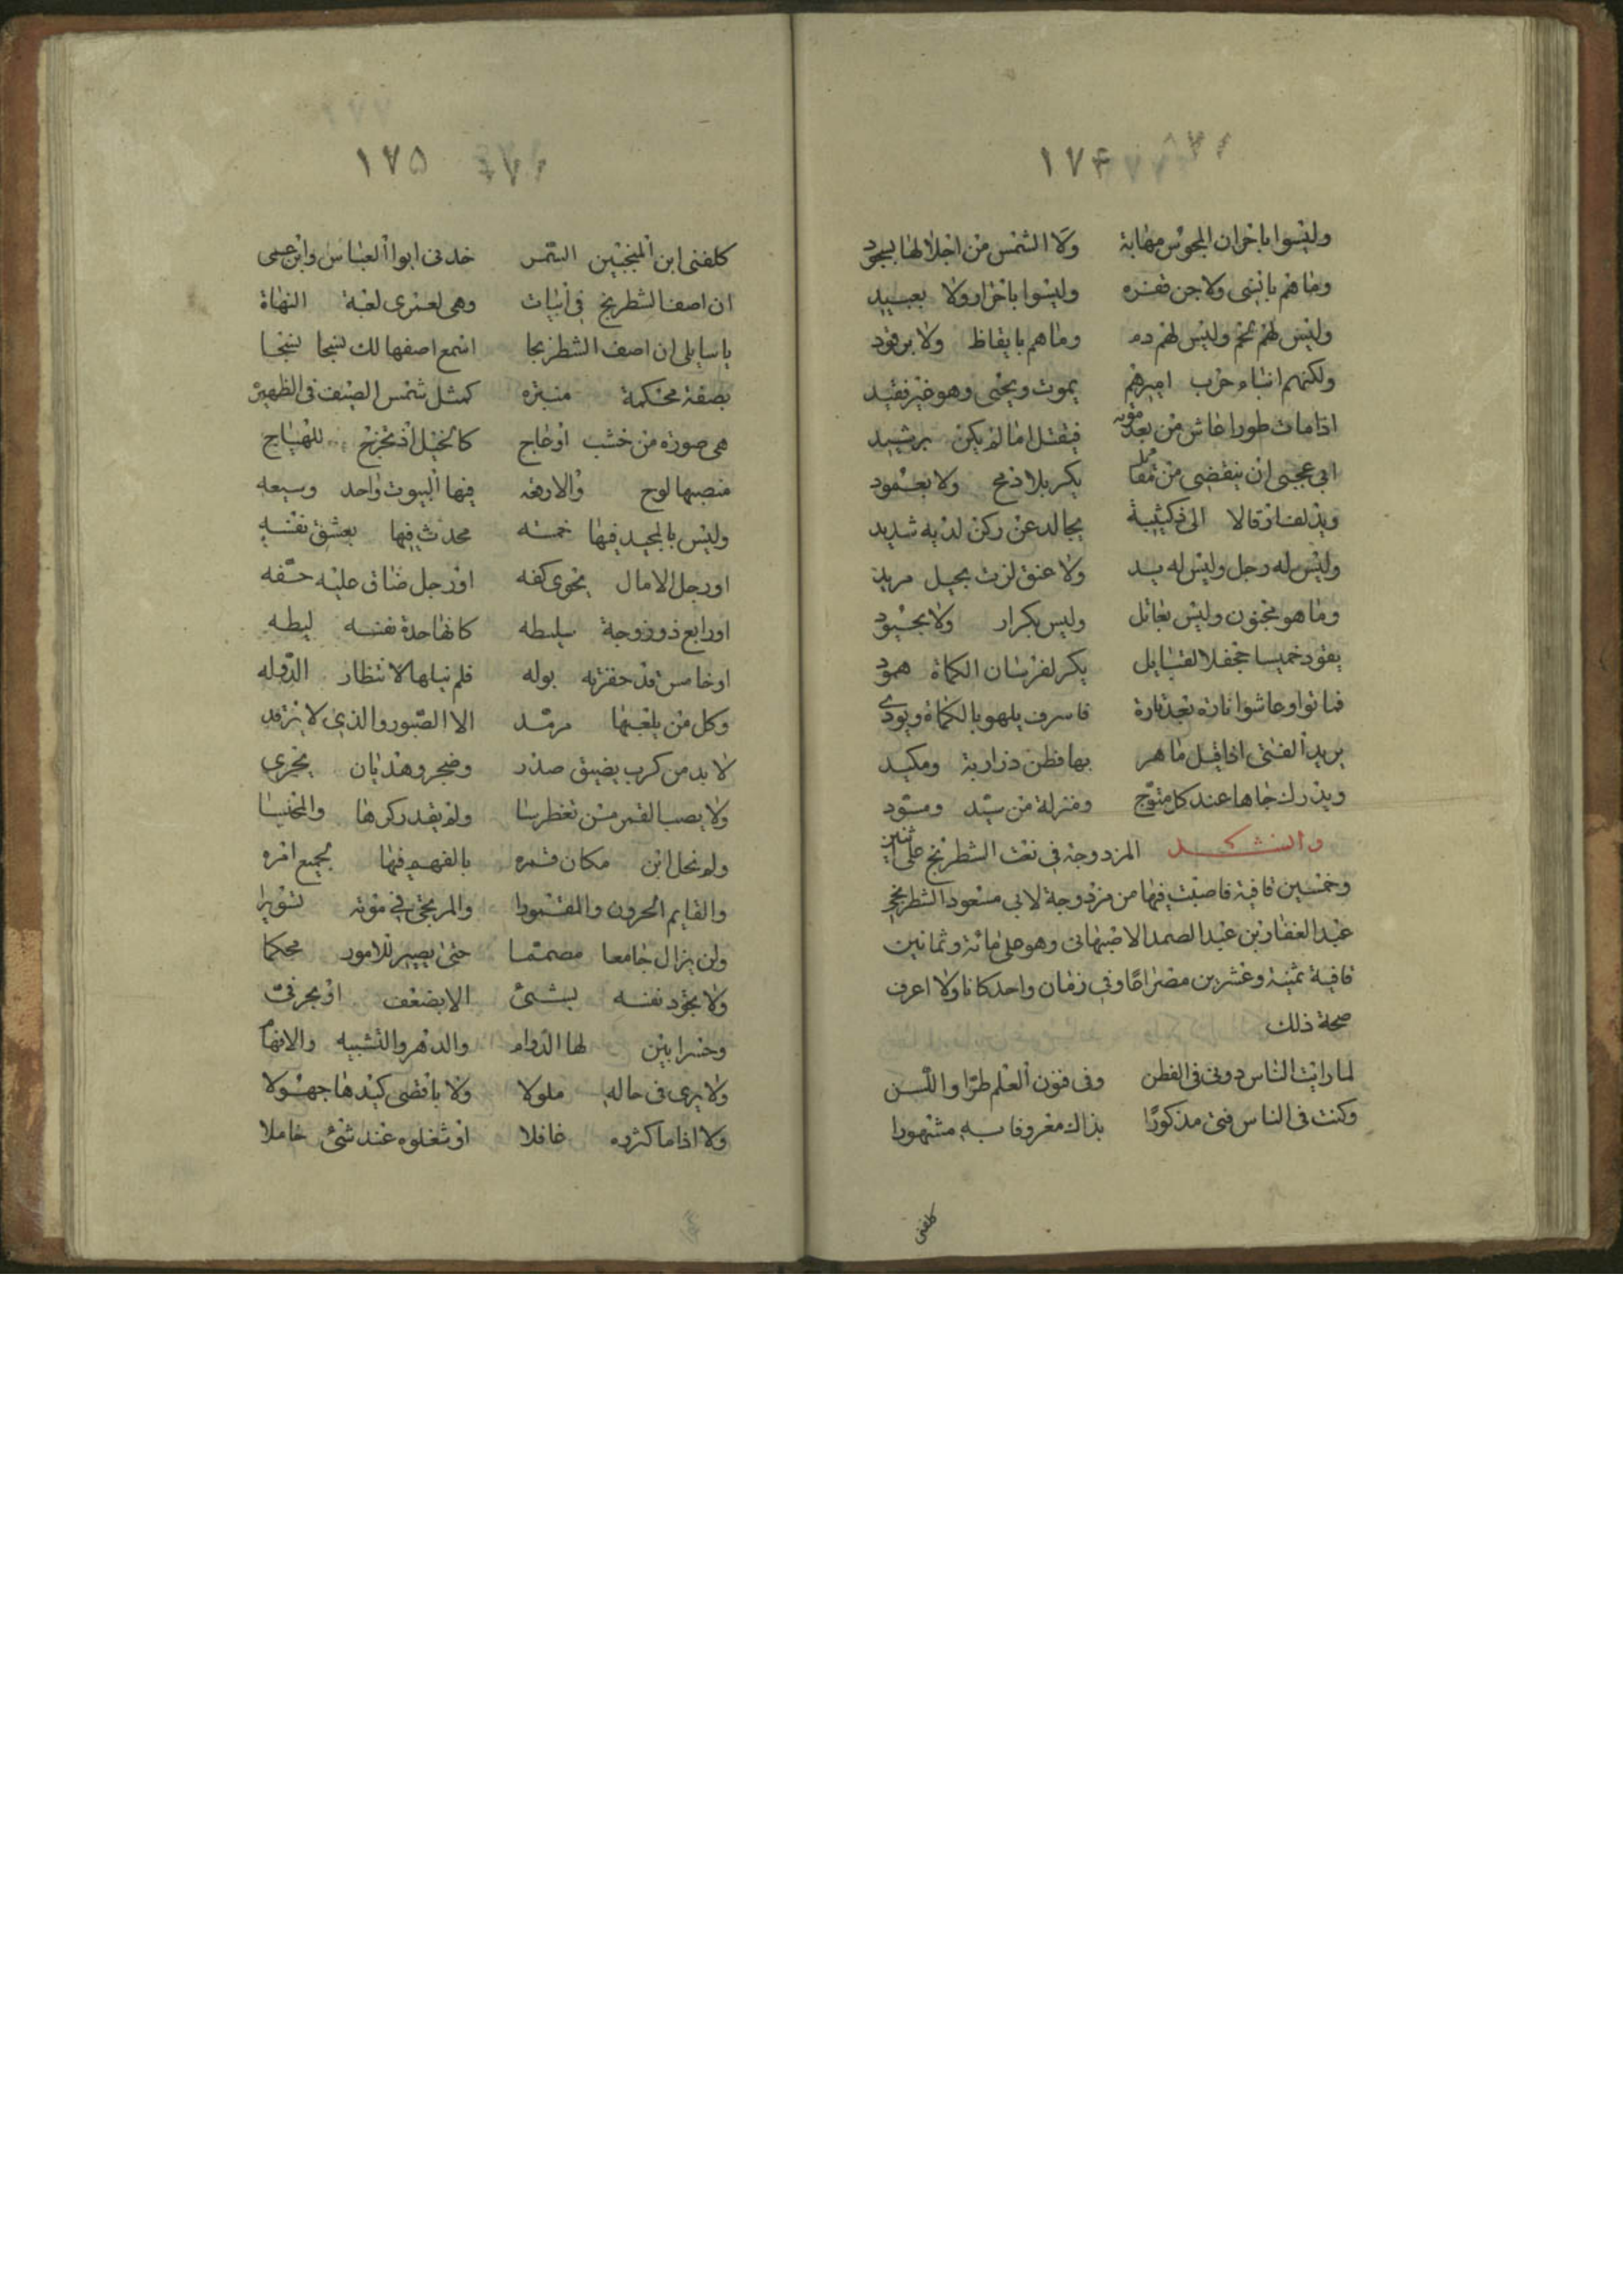 ١٧۴
وليسوا باخوان المجوس مهابة ولا الشمس من اجلالها بسجود
وما هم بانسى ولا جن قفره وليسوا باحرار ولا بعبيد
وليس لهم لحم وليس لهم دم وما هم بايقاظ ولا برقود
ولكنهم ابناء حرب اميرهم يموت ويحيى وهو غير فقيد
اذا مات طورا عاش من بعد موته فيقتل اما لم يكن برشيد
يكر بلا رمح ولا بعمود
الى ذى كتيبة يجالد عن ركن لديه شديد
وليس له رجل وليس له يد ولا عنق لزت بحبل مريد
وما هو مجنون وليس بعاقل وليس بكرار ولا بحيود
يقود خميسا جحفلا لقبايل يكر لفرسان الكماة همود
فماتوا وعاشوا تارة بعد تارة فاسرف يلهو بالكماة ويودى
يريد الفتى اذا قيل ماهر بها فطن ذا اربة ومكيد
ويدرك جاها عند كل متوج ومنزلة من سيد ومسود
المزدوجة فى نعت الشطرنج على ثنين
وخمسين قافية فاصبت فيها من مزدوجة لابى مسعود الشطرنجى
عبد الغفار بن عبد الصمد الاصبهانى وهو على مائة وثمانين
قافية ثمنية وعشرين مصراعا وفى زمان واحد كانا ولا اعرف
صحة ذلك
لما رايت الناس دونى فى الفطن وفى فنون العلم طرا واللسن
وكنت فى الناس فتى مذكورا بذاك معروفا به مشهورا
كلفنى
١٧۵
كلفنى ابن المنجمين الشمس خدنى ابوا العباس وابن عيسى
ان اصف الشطرنج فى ابيات وهى لعمرى لعبة النهاة
يا سايلى ان اصف الشطرنجا اسمع اصفها لك نسجا نسجا
بصفة محكمة منيره كمثل شمس الصيف فى الظهيره
هى صورة من خشب او عاج كالخيل اذ تخرج للهياج
منصبها لوح والارقه فيها البيوت واحد وسبعه
وليس بالمجيد فيها خمسه محدث فيها بعشق نفسه
او رجل الامال يحوى كفه او رجل ضاق عليه حتفه
او رابع ذو زوجة سليطه كانها حدة نفسه ليطه
او خامس قد حقرته بوله فلم ينلها لانتظار الدوله
وكل من يلعبها مرمد الا الصبور والذى لا يزقد
لا بد من كرب يضيق صدر وضجر وهذيان يجرى
ولم يقد ركرها والمخنسا
مكان قمره بالفهم فيها لجميع امره
والقايم الحرون والمقسورا والمرتجى فى موته تشويرا
ولن يزال جامعا مصمتما حتى يصير للامور محكما
ولا يجود نفسه بشئ الا بضعف او بحرفى
لها الدوام والدهر والتشبيه والانهام
ولا يرى فى حاله ملولا ولا باقصى كيدها جهولا
ولا اذا ما كثروه غافلا او شغلوه عند شئ خاملا